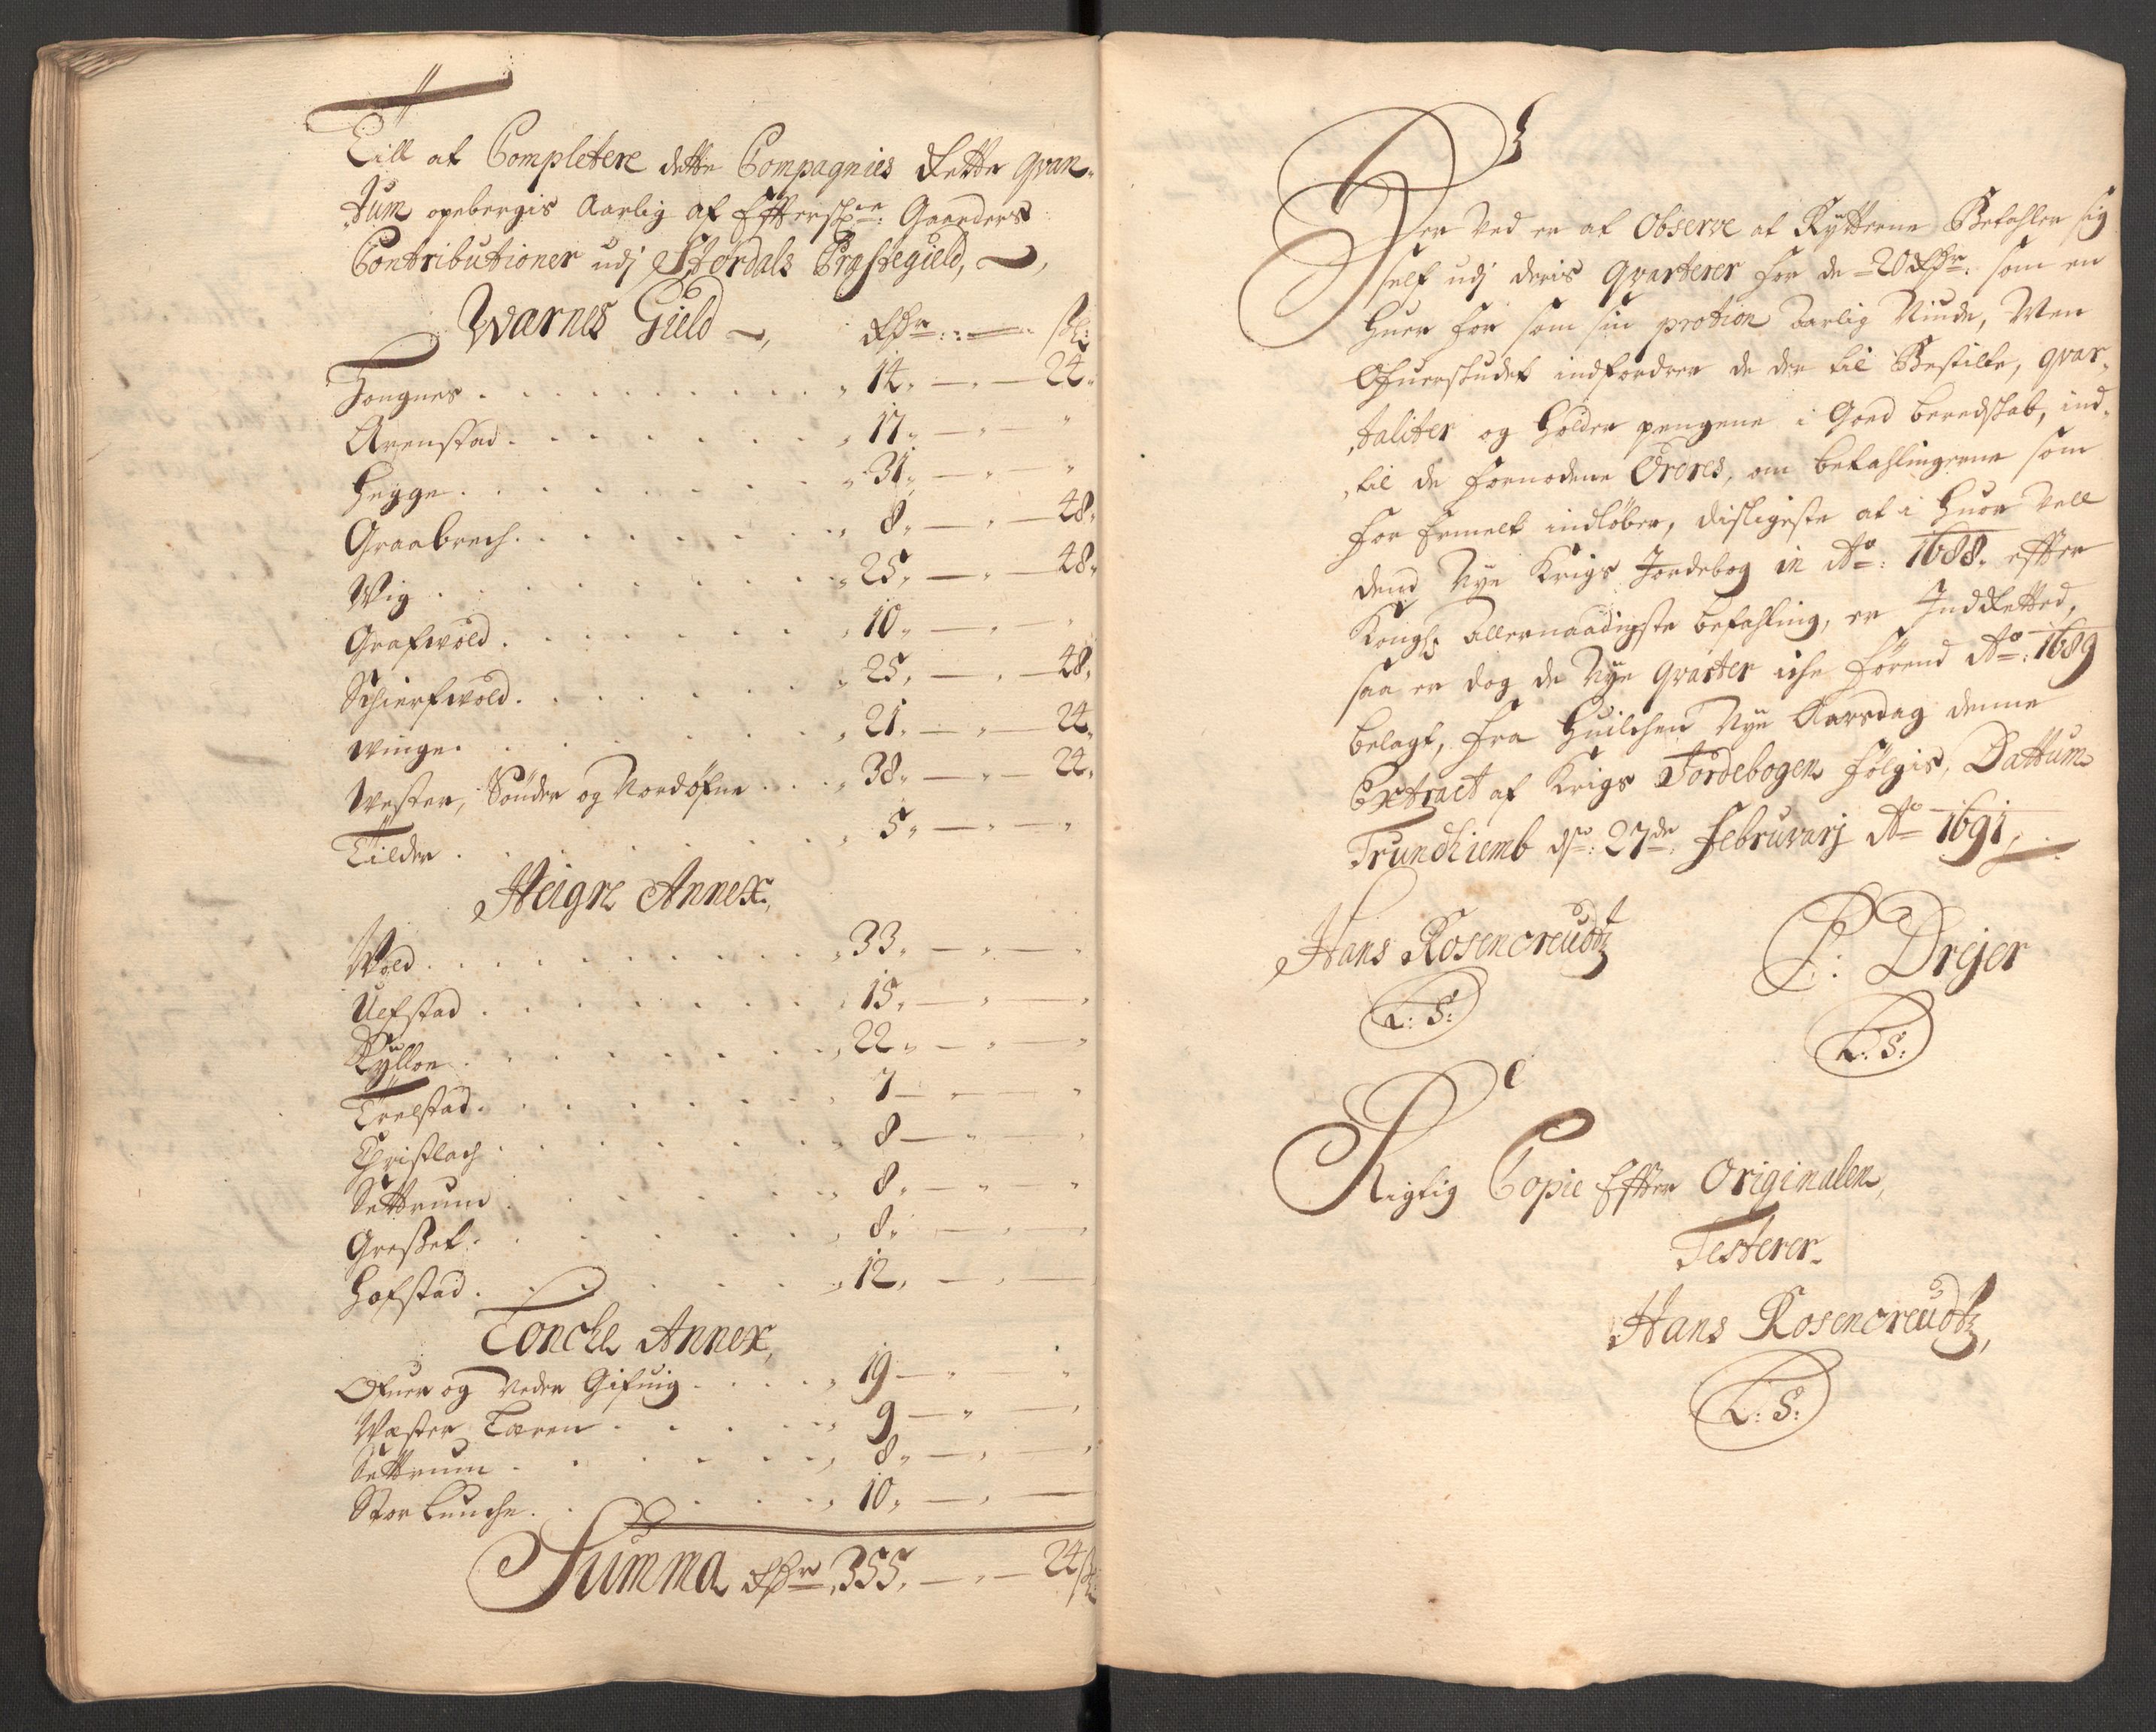 Till at Completere dette Compagnies Rette qvan-
tum opebergis Aarlig af Effterschr: Gaarders
Contributioner udj Størdals Præstegield,
Warnes Gield Rdr sk:
Hongnes 14 24
Arenstad 17
Hegge 31
Graabrech 8 48
Wig 25 48
Grafwold 10
Schierfwold 25 48
winge 21 24
wester, Sønder og Nordøfne 38 24
Tilder 5
Heigre Annex
Wold 33
Uefstad 15
Rylloe 22
Trelstad 7
Christlach 8
Settrum 8
Gresset 8
Hofstad 12
Lonche Annex
Ofuer og neder Gifuig 19
Wæster Læren 9
Settrum 8
Stor Lunche 10
Summa Rdr 355 24 sk
Der ved er at Observe at Rytterne Betahler sig
self udj deris Qvarterer for de 20 Rdr som en
huer for som sin protion Aarlig Niude, Men
Ofuerskudet indfordrer de der til Bestilte, qvar-
taliter og holder pengene i Goed beredskab, ind-
til de fornødene Ordres, om betahlingerne som
for ermelt indløber, disligeste at i huor vell
dend Nye Krigs Jordebog in Ao: 1688. effter
Kongl: allernaadigste befahling, er Indrettet,
saa er dog de Nye qvarter iche førend Ao: 1689
belagt, fra huilchen Nye Aarsdag denne
Extract af Krigs Jordebogen følgis, Dattum
Trundhiemb dn: 27de Februvarj Ao 1691,
Hans Rosencreudtz P: Drejer
L: S: L: S:
Rigtig Copie Effter Originalen,
Testerer
Hans Rosencreudtz,
L: S: